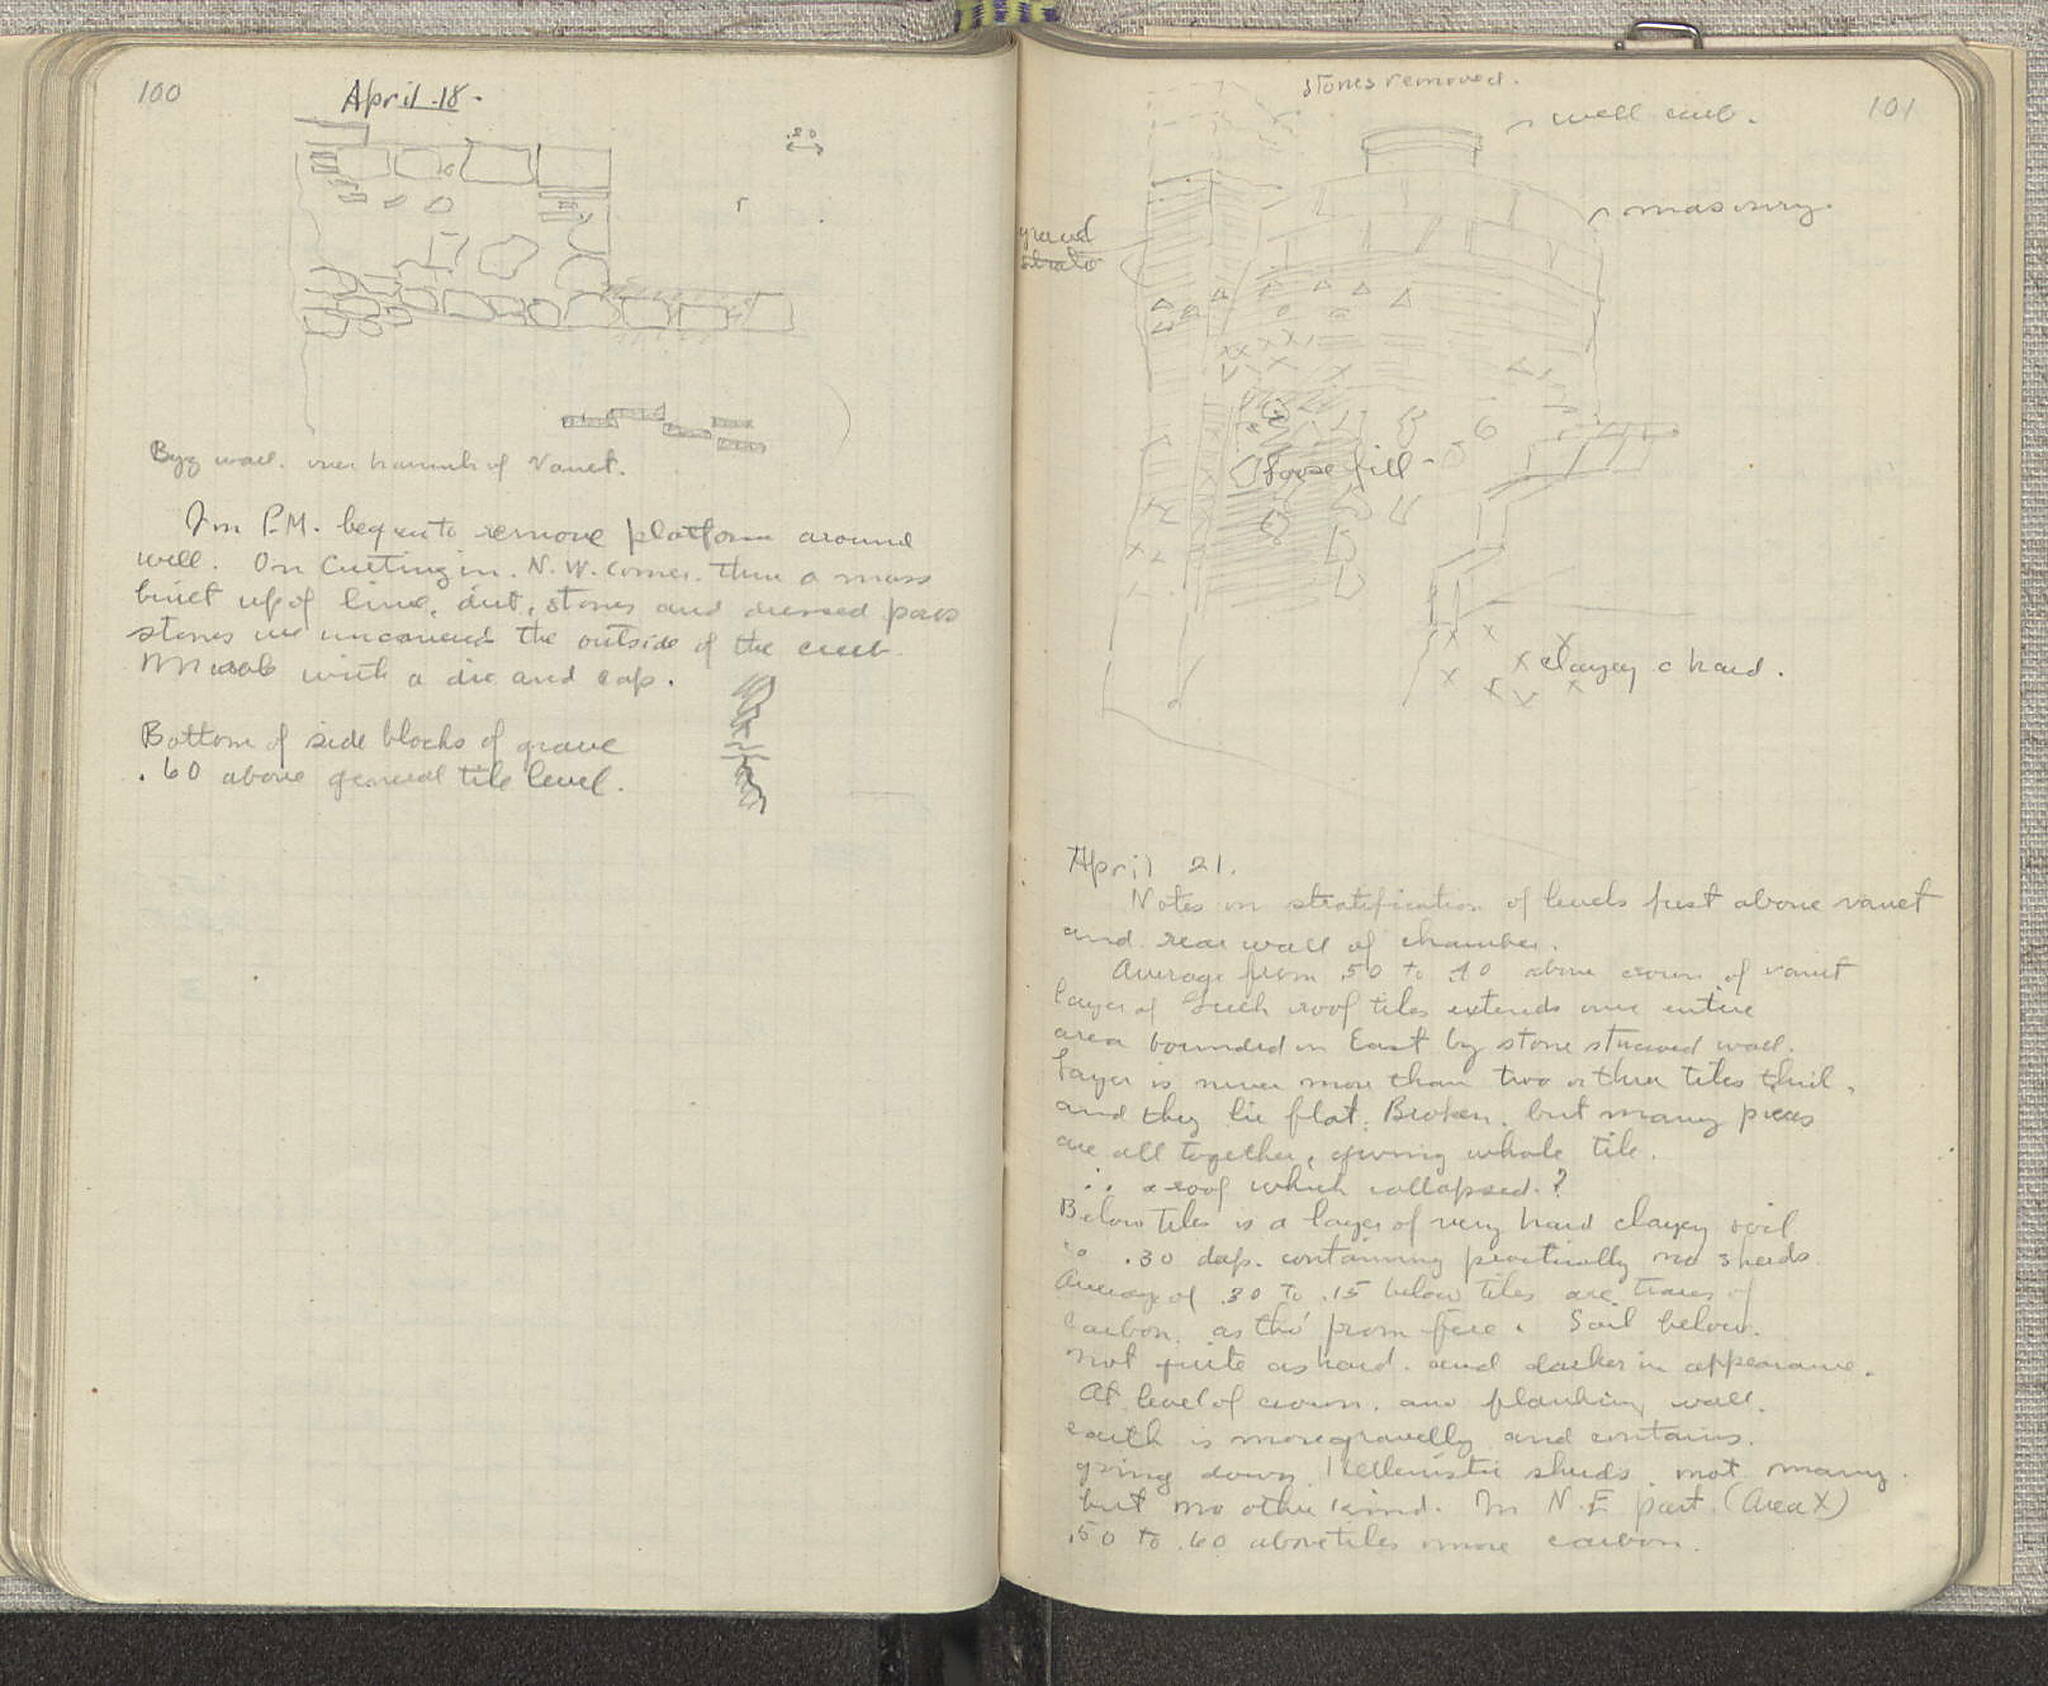 100
April 18.
.20
Byz wall. over haunch of Vault.
In P.M. began to remove platform around
well. On Cutting in N.W. corner. thru a mass
built up of lime, dirt, stones and dressed poros
stones we uncovered the outside of the curb
with a die and cap.
Bottom of side blocks of grave
.60 above general tile level.
101
stones removed.
well curb.
masonry.
strata
loose fill
clayey & hard.
April 21.
Notes on stratification of levels just above vault
and rear wall of chamber.
Average from .50 to .40 above crown of vault
layer of Greek roof tiles extends over entire
area bounded on East by stone strewed wall.
Layer is never more than two or three tiles thick,
and they lie flat. Broken, but many pieces
are all together, giving whole tile.
∴ a roof which collapsed?
Below Tiles is a layer of very hard clayey soil
to .30 deep. containing practically no sherds
Average of .30 to .15 below tiles are traces of
carbon, as tho' from fire. Soil below.
not quite as hard. and darker in appearance.
At level of crown. and flanking wall.
earth is more gravelly and contains.
going down Hellenistic sherds, not many
but no other kind. In N.E part. (Area X)
.50 to .60 above tiles more carbon.